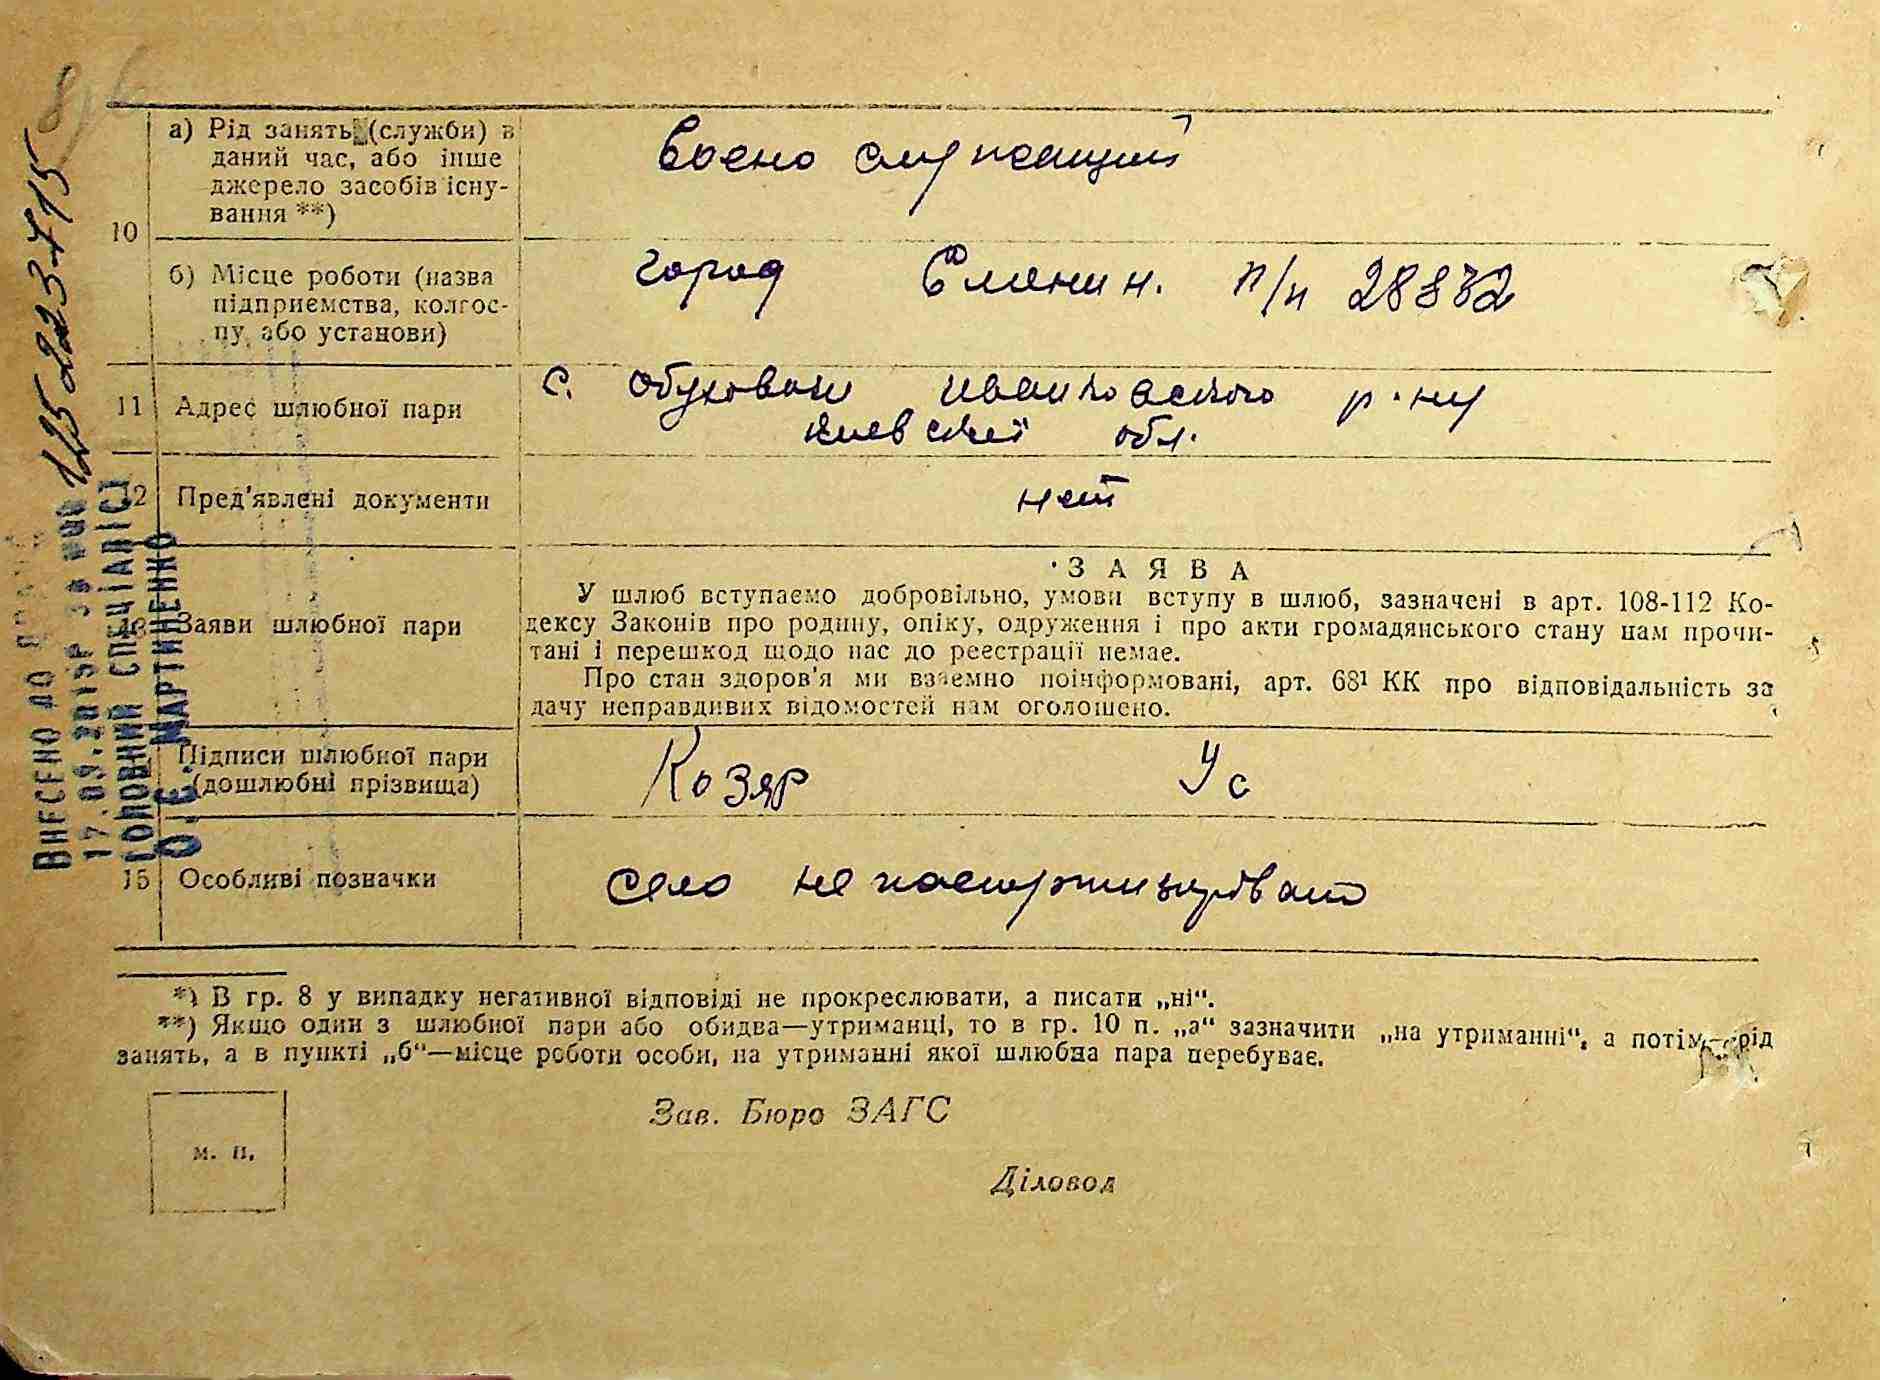 а) Рід занять (служби) в
даний час, або інше
джерело засобів існу-
вання **)
воено служащий
10
б) Місце роботи (назва
підприємства, колгос-
пу, або установи)
город п/ч 28882
11
Адрес шлюбної пари
с. обуховichi иванковского р-ну
киевскої обл.
12
Пред'явлені документи
нет
13
Заяви шлюбної пари
ЗАЯВА
У шлюб вступаємо добровільно, умови вступу в шлюб, зазначені в арт. 108-112 Ко-
дексу Законів про родину, опіку, одруження і про акти громадянського стану нам прочи-
тані і перешкод щодо нас до реєстрації немає.
Про стан здоров'я ми взаємно поінформовані, арт. 68¹ КК про відповідальність за
дачу неправдивих відомостей нам оголошено.
Підписи шлюбної пари
(дошлюбні прізвища)
Козяр Ус
15
Особливі позначки
село не паспортизировано
*) В гр. 8 у випадку негативної відповіді не прокреслювати, а писати „ні".
**) Якщо один з шлюбної пари або обидва—утриманці, то в гр. 10 п. „а" зазначити „на утриманні", а потім—рід
занять, а в пункті „б"—місце роботи особи, на утриманні якої шлюбна пара перебуває.
м. п.
Зав. Бюро ЗАГС
Діловод
ВНЕСЕНО ДО
17.09.2015Р ЗА №
ГОЛОВНИЙ СПЕЦІАЛІСТ
О.Є. МАРТИНЕНКО